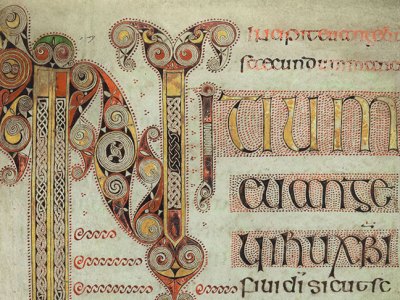 incipit euangeli
secundum
INITIUM
euange
lii ihu xpi
fili di sicut